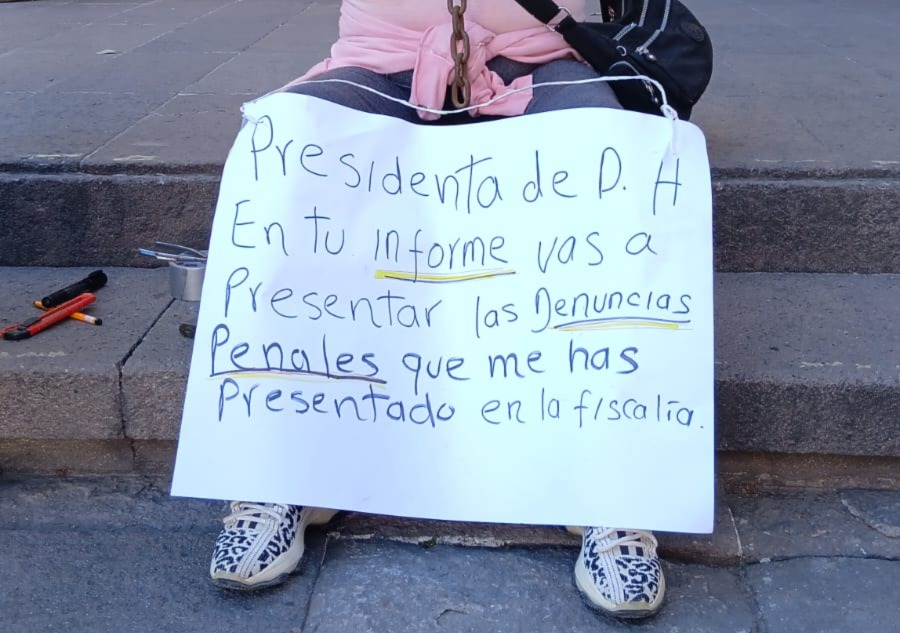 Presidenta de D. H
En tu informe vas a
Presentar las Denuncias
Penales que me has
Presentado en la fiscalía.